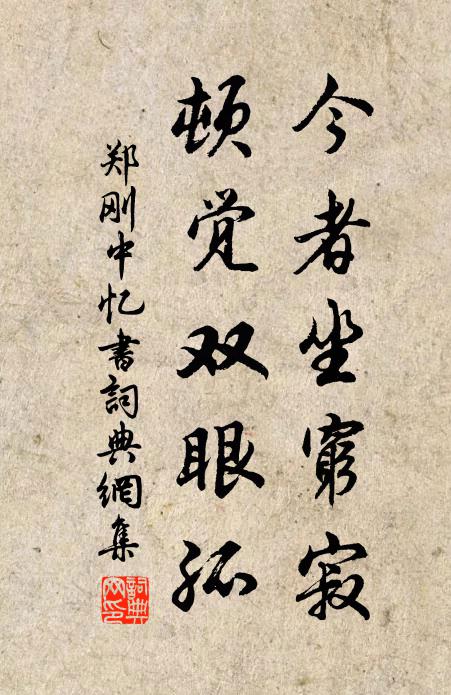 今者坐窮寂
顿觉双眼孤
郑刚中忆書詞典網集
詞典網印